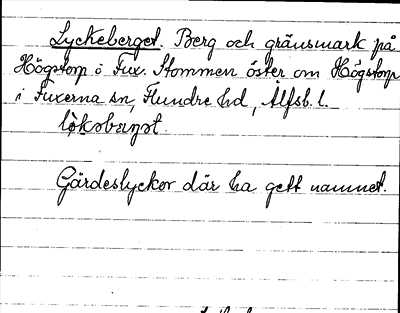 Lyckeberget. Berg och gränsmark på
Högstorp o Fux. Stommen öster om Högstorp
i Fuxerna sn, Flundre hd, Älfsb. l.
Gärdeslyckor där ha gett namnet.